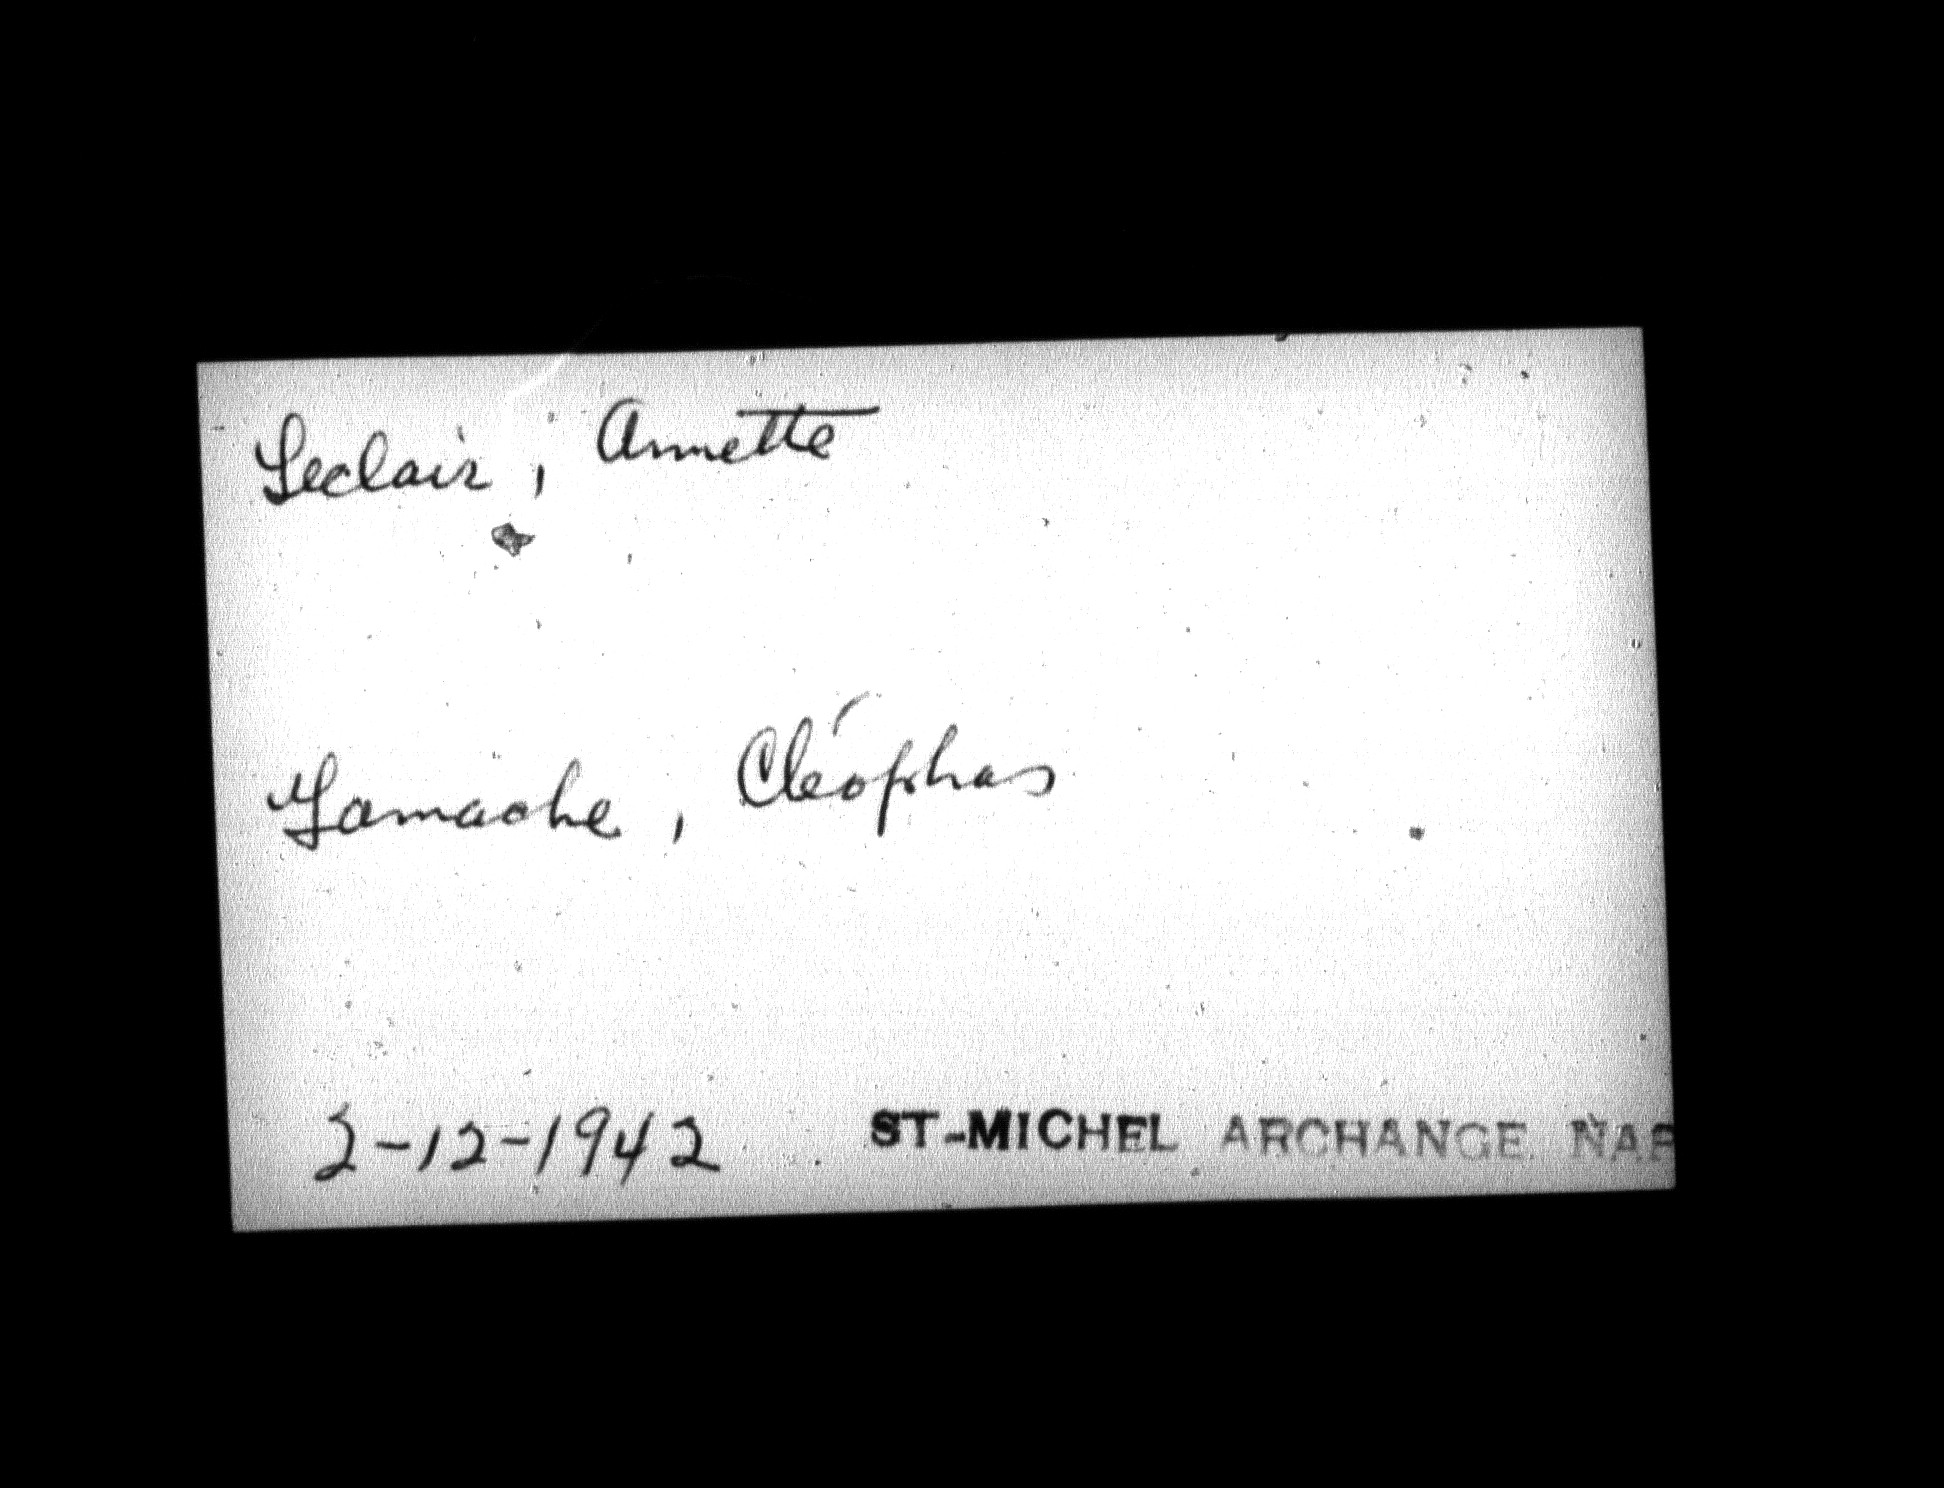 Leclair, Annette
Gamache, Cléophas
2-12-1942 ST-MICHEL ARCHANGE. NAP